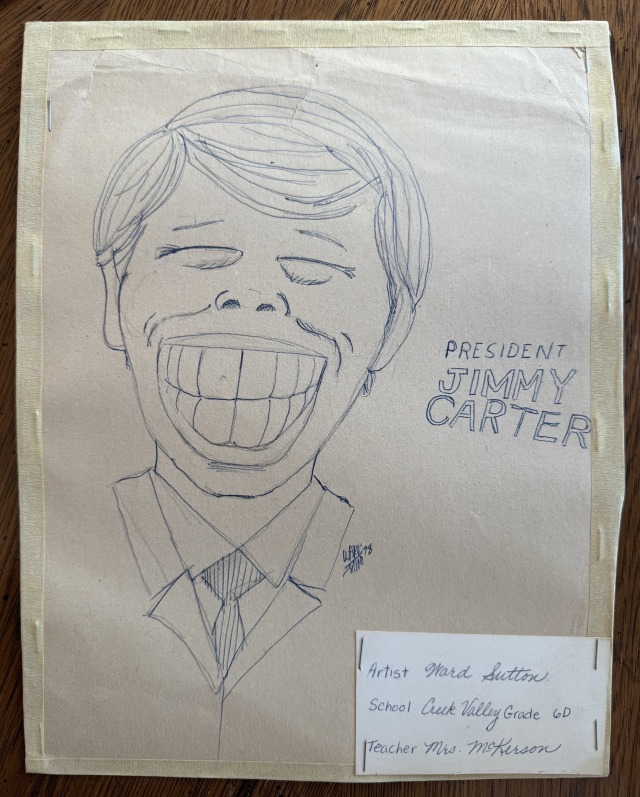 PRESIDENT
JIMMY
CARTER
WARD '78
SUTTON
Artist Ward Sutton
School Creek Valley Grade 6D
Teacher Mrs. McKerson